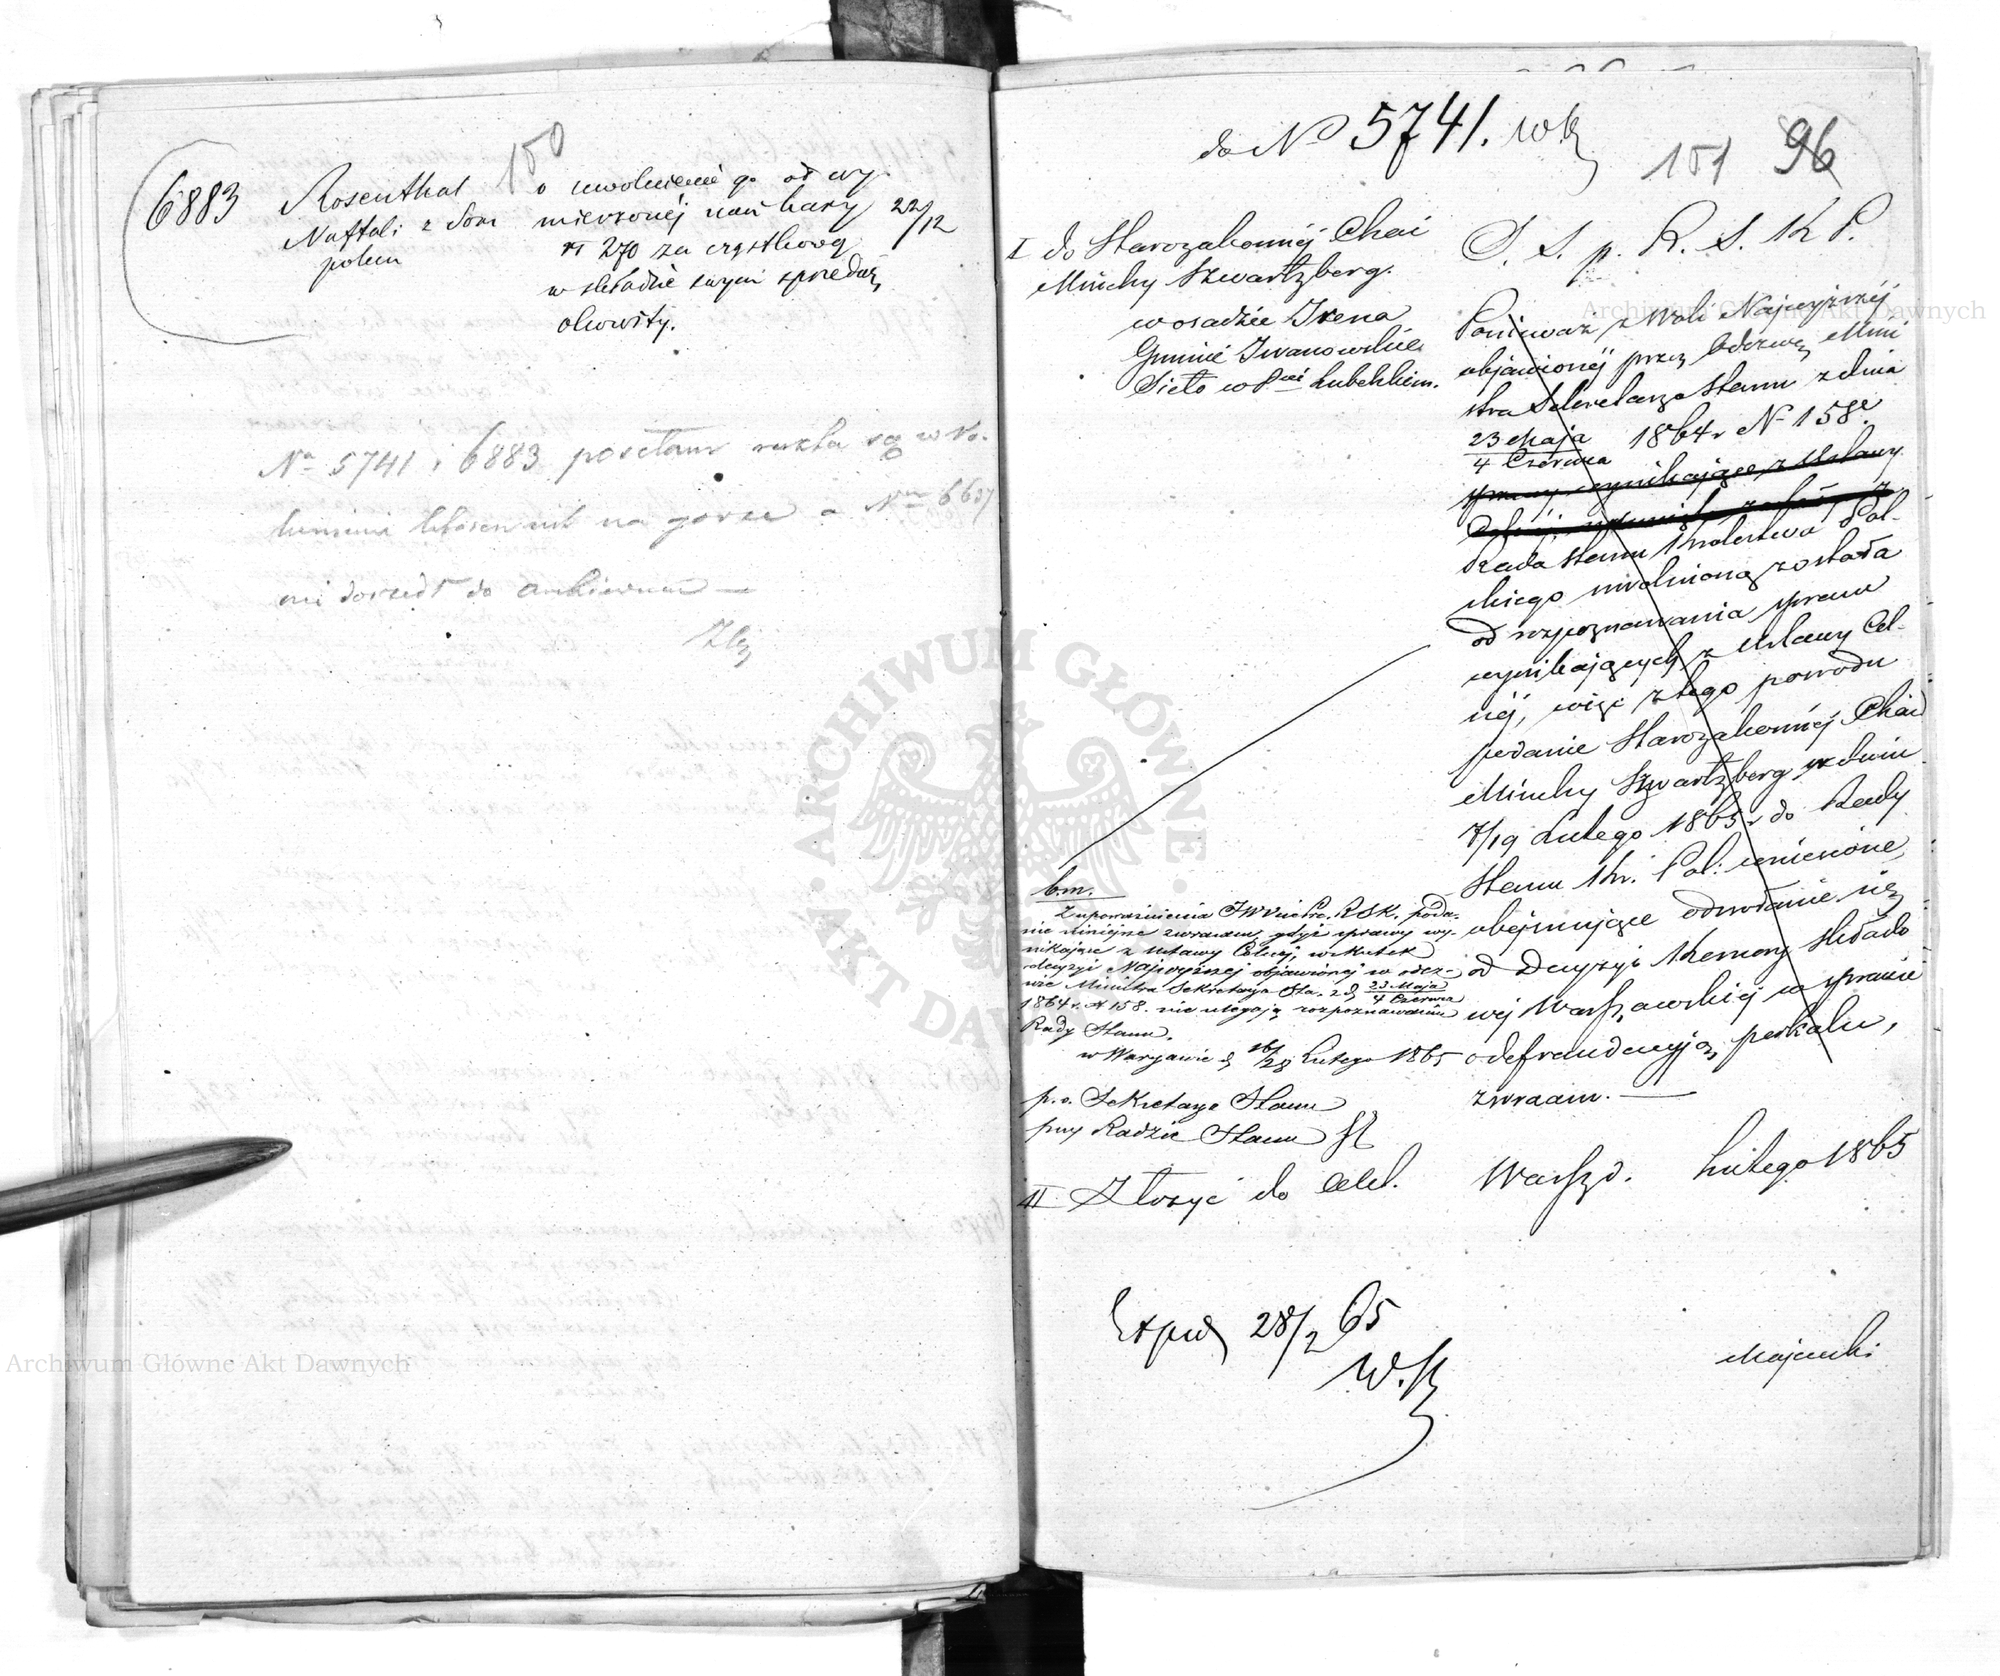 150
6883
Rosenthal
Naftali z Som
polem
o uwolnienie go od wy
mierzonéj nań kary
rs 270 za cząstkową
w składzie swym sprzedaż
okowity.
22/12
Nr 5741 i 6883 posłane
na górze a Nr
nie doszedł do Archiwum —
do No 5741.
151 96
I do Starozakonnéj Chai
Minchy Szwartzberg.
w osadzie Irena
Gminie Iwanowskie
Sioło w Pcie Lubelskim.
S. S. p. R. S. K P.
Ponieważ z Woli Najwyższéj
objawionéj przez Odezwę Mini
stra Sekretarza Stanu z dnia
23 Maja
4 Czerwca 1864 r N 158.
sprawy wynikające z Ustawy
Celnéj
Rada Stanu Królestwa Pol-
skiego uwolnioną została
od rozpoznawania spraw
wynikających z Ustawy Cel-
néj, więc z tego powodu
podanie Starozakonnéj Chai
Minchy Szwartzberg w dniu
7/19 Lutego 1865 r do Rady
Stanu Kr. Pol: wniesione,
obejmujące odwołanie się
od Decyzyi Komory Składo
wej Warszawskiej w sprawie
o defraudacyją perkalu,
zwracam. —
Warsz d. Lutego 1865
b.m.
Z upoważnienia JW Vice Pre. RSK. poda-
nie niniejsze zwracam, gdyż sprawy wy-
nikające z Ustawy Celnej, w skutek
decyzyi Najwyższej objawionej w odez-
wie Ministra Sekretarza Sta. z d. 23 Maja
4 Czerwca
1864 r. N 158. nie ulegają rozpoznawaniu
Rady Stanu.
w Warszawie d 16/28 Lutego 1865
p.o. Sekretarza Stanu
przy Radzie Stanu
II Złożyć do
28/2 65
Majewski
ARCHIWUM GŁÓWNE
AKT DAWNYCH
Archiwum Główne Akt Dawnych
Archiwum Główne Akt Dawnych